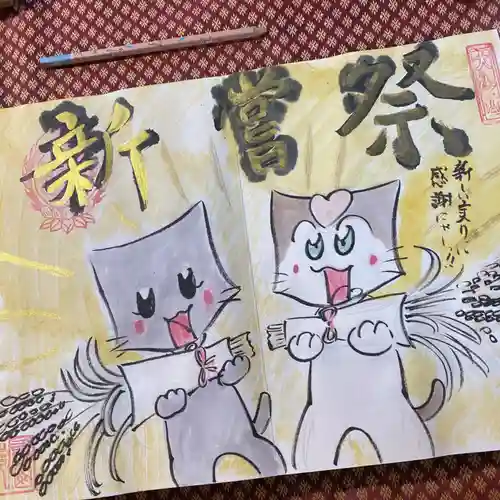 新嘗祭
新しい実りに
感謝にゃ〜!!